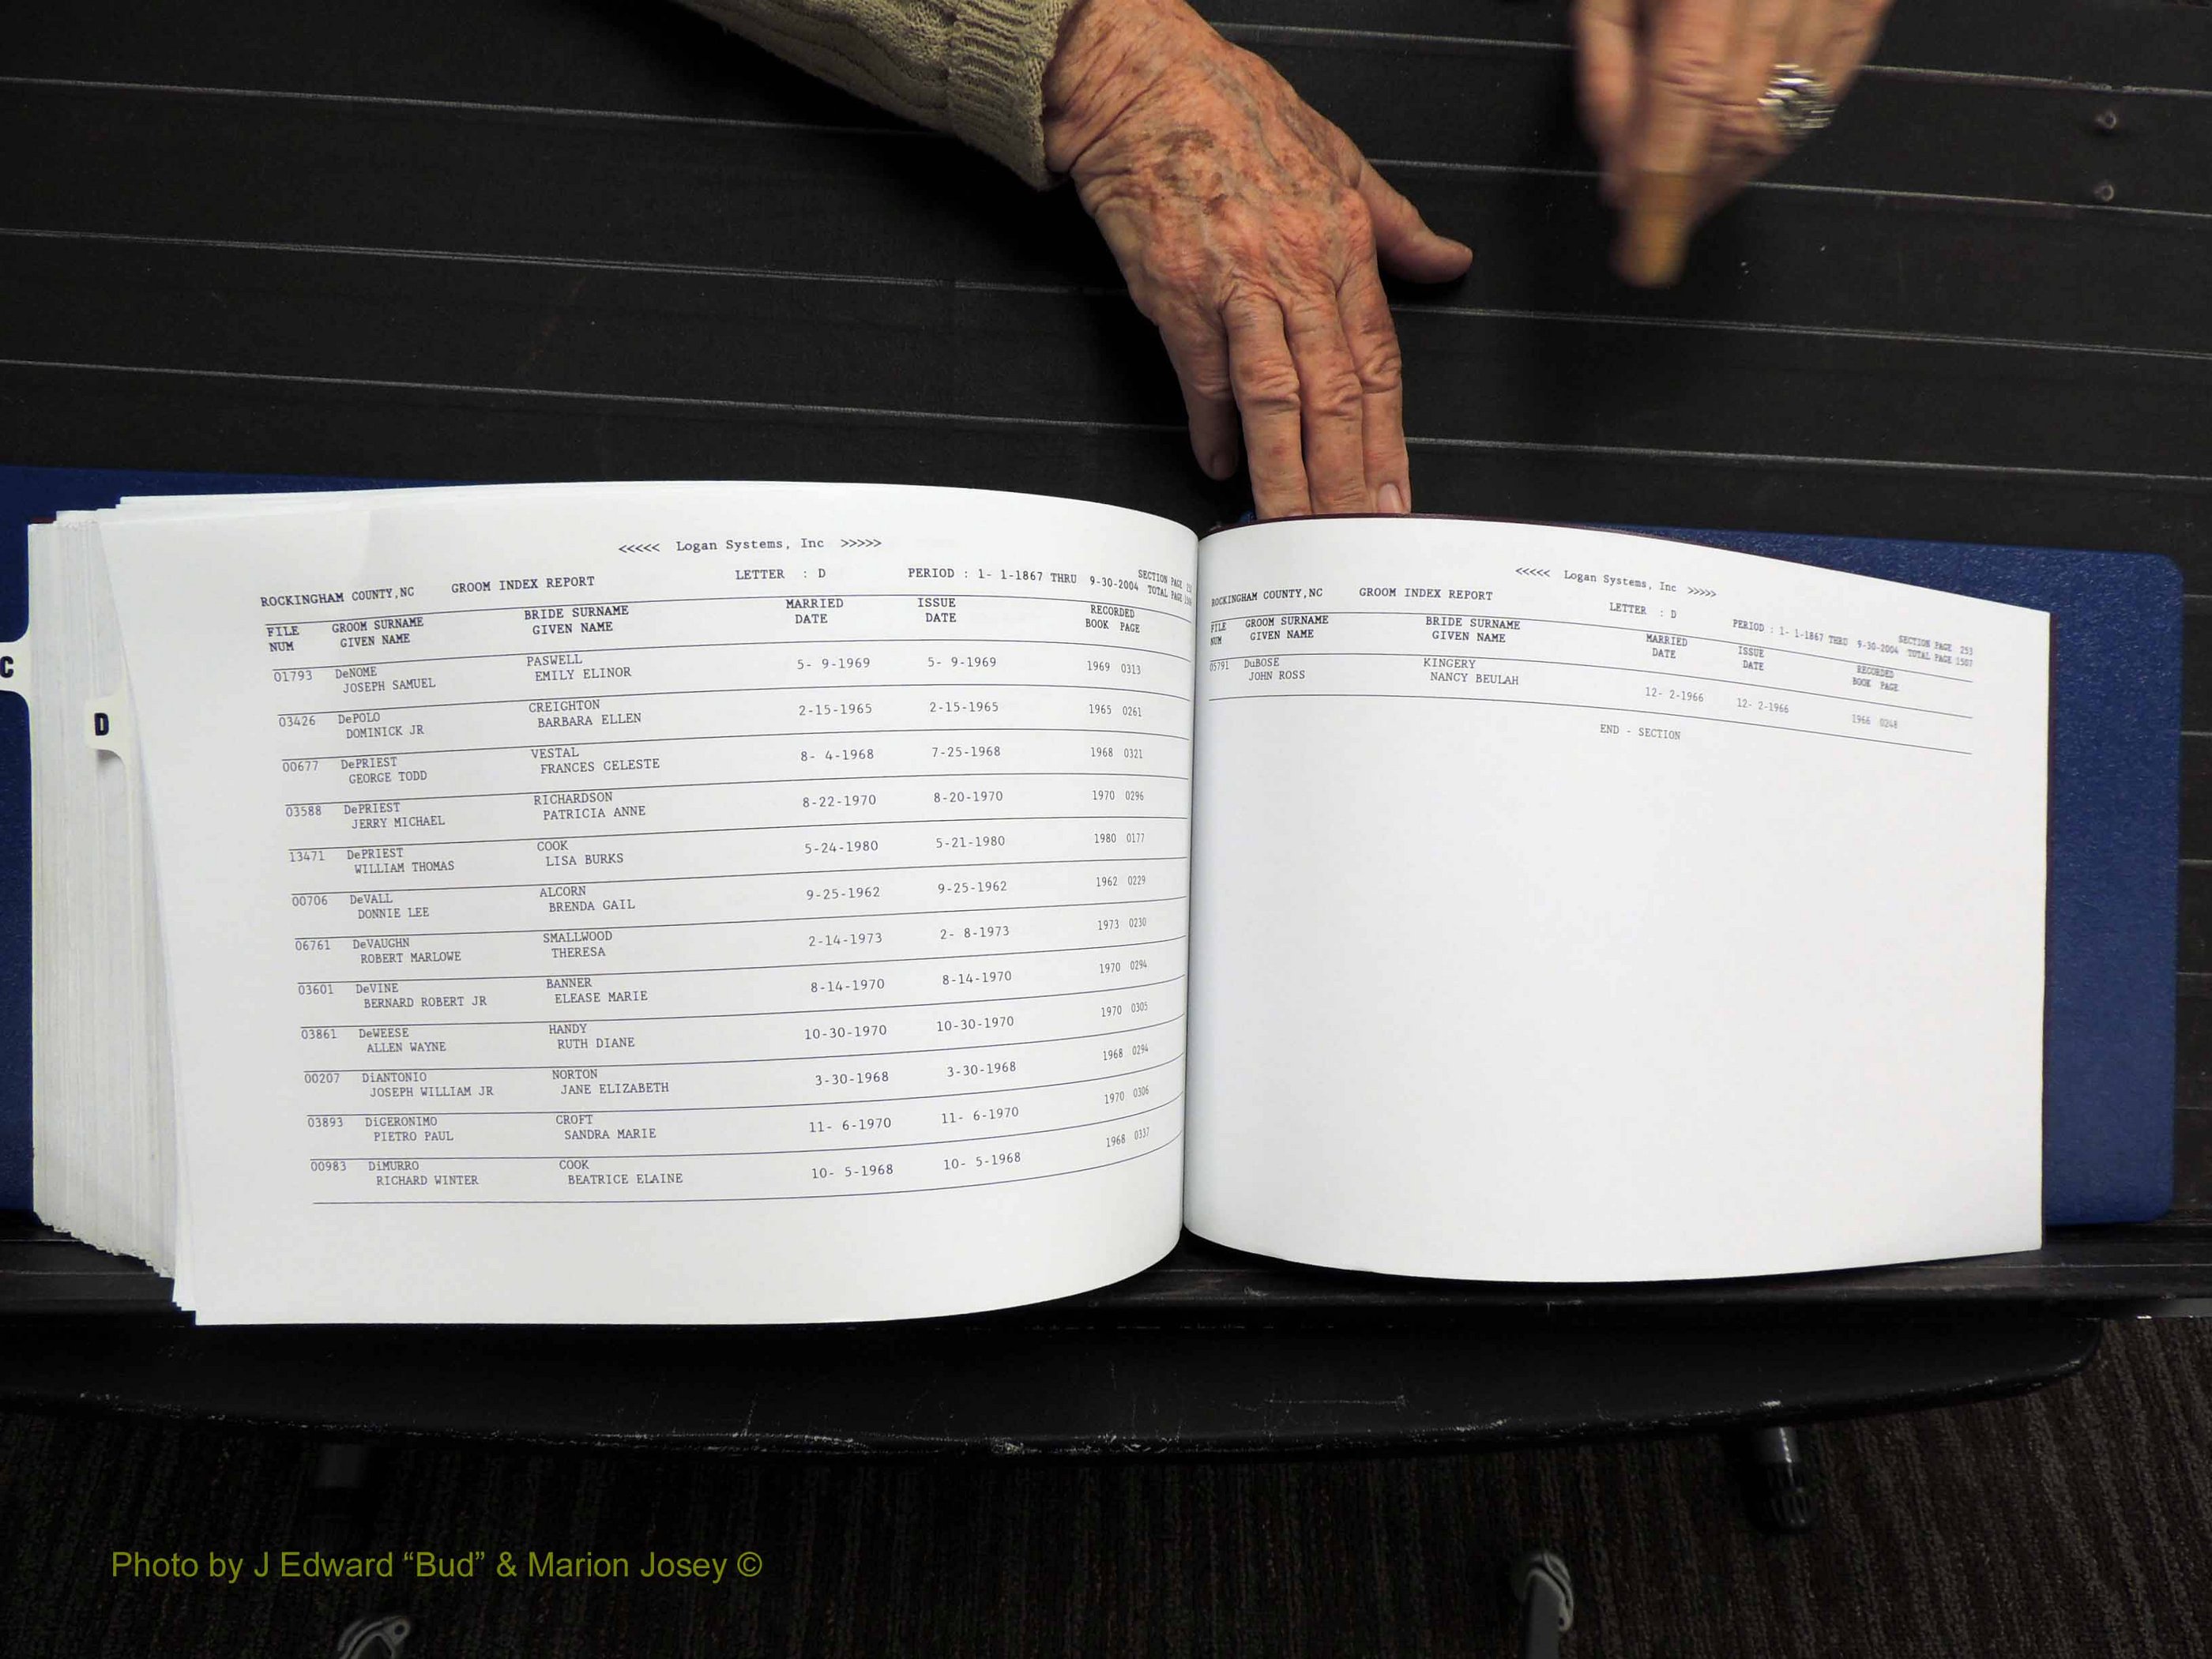 C
D
<<<<< Logan Systems, Inc >>>>>
ROCKINGHAM COUNTY,NC GROOM INDEX REPORT LETTER : D PERIOD : 1- 1-1867 THRU 9-30-2004 SECTION PAGE
TOTAL PAGE
FILE GROOM SURNAME BRIDE SURNAME MARRIED ISSUE RECORDED
NUM GIVEN NAME GIVEN NAME DATE DATE BOOK PAGE
01793 DeNOME PASWELL 5- 9-1969 5- 9-1969 1969 0313
JOSEPH SAMUEL EMILY ELINOR
03426 DePOLO CREIGHTON 2-15-1965 2-15-1965 1965 0261
DOMINICK JR BARBARA ELLEN
00677 DePRIEST VESTAL 8- 4-1968 7-25-1968 1968 0321
GEORGE TODD FRANCES CELESTE
03588 DePRIEST RICHARDSON 8-22-1970 8-20-1970 1970 0296
JERRY MICHAEL PATRICIA ANNE
13471 DePRIEST COOK 5-24-1980 5-21-1980 1980 0177
WILLIAM THOMAS LISA BURKS
00706 DeVALL ALCORN 9-25-1962 9-25-1962 1962 0229
DONNIE LEE BRENDA GAIL
06761 DeVAUGHN SMALLWOOD 2-14-1973 2- 8-1973 1973 0230
ROBERT MARLOWE THERESA
03601 DeVINE BANNER 8-14-1970 8-14-1970 1970 0294
BERNARD ROBERT JR ELEASE MARIE
03861 DeWEESE HANDY 10-30-1970 10-30-1970 1970 0305
ALLEN WAYNE RUTH DIANE
00207 DiANTONIO NORTON 3-30-1968 3-30-1968 1968 0294
JOSEPH WILLIAM JR JANE ELIZABETH
03893 DiGERONIMO CROFT 11- 6-1970 11- 6-1970 1970 0306
PIETRO PAUL SANDRA MARIE
00983 DiMURRO COOK 10- 5-1968 10- 5-1968 1968 0337
RICHARD WINTER BEATRICE ELAINE
<<<<< Logan Systems, Inc >>>>>
ROCKINGHAM COUNTY,NC GROOM INDEX REPORT LETTER : D PERIOD : 1- 1-1867 THRU 9-30-2004 SECTION PAGE 253
TOTAL PAGE 1507
FILE GROOM SURNAME BRIDE SURNAME MARRIED ISSUE RECORDED
NUM GIVEN NAME GIVEN NAME DATE DATE BOOK PAGE
05791 DuBOSE KINGERY 12- 2-1966 12- 2-1966 1966 0248
JOHN ROSS NANCY BEULAH
END - SECTION
Photo by J Edward “Bud” & Marion Josey ©